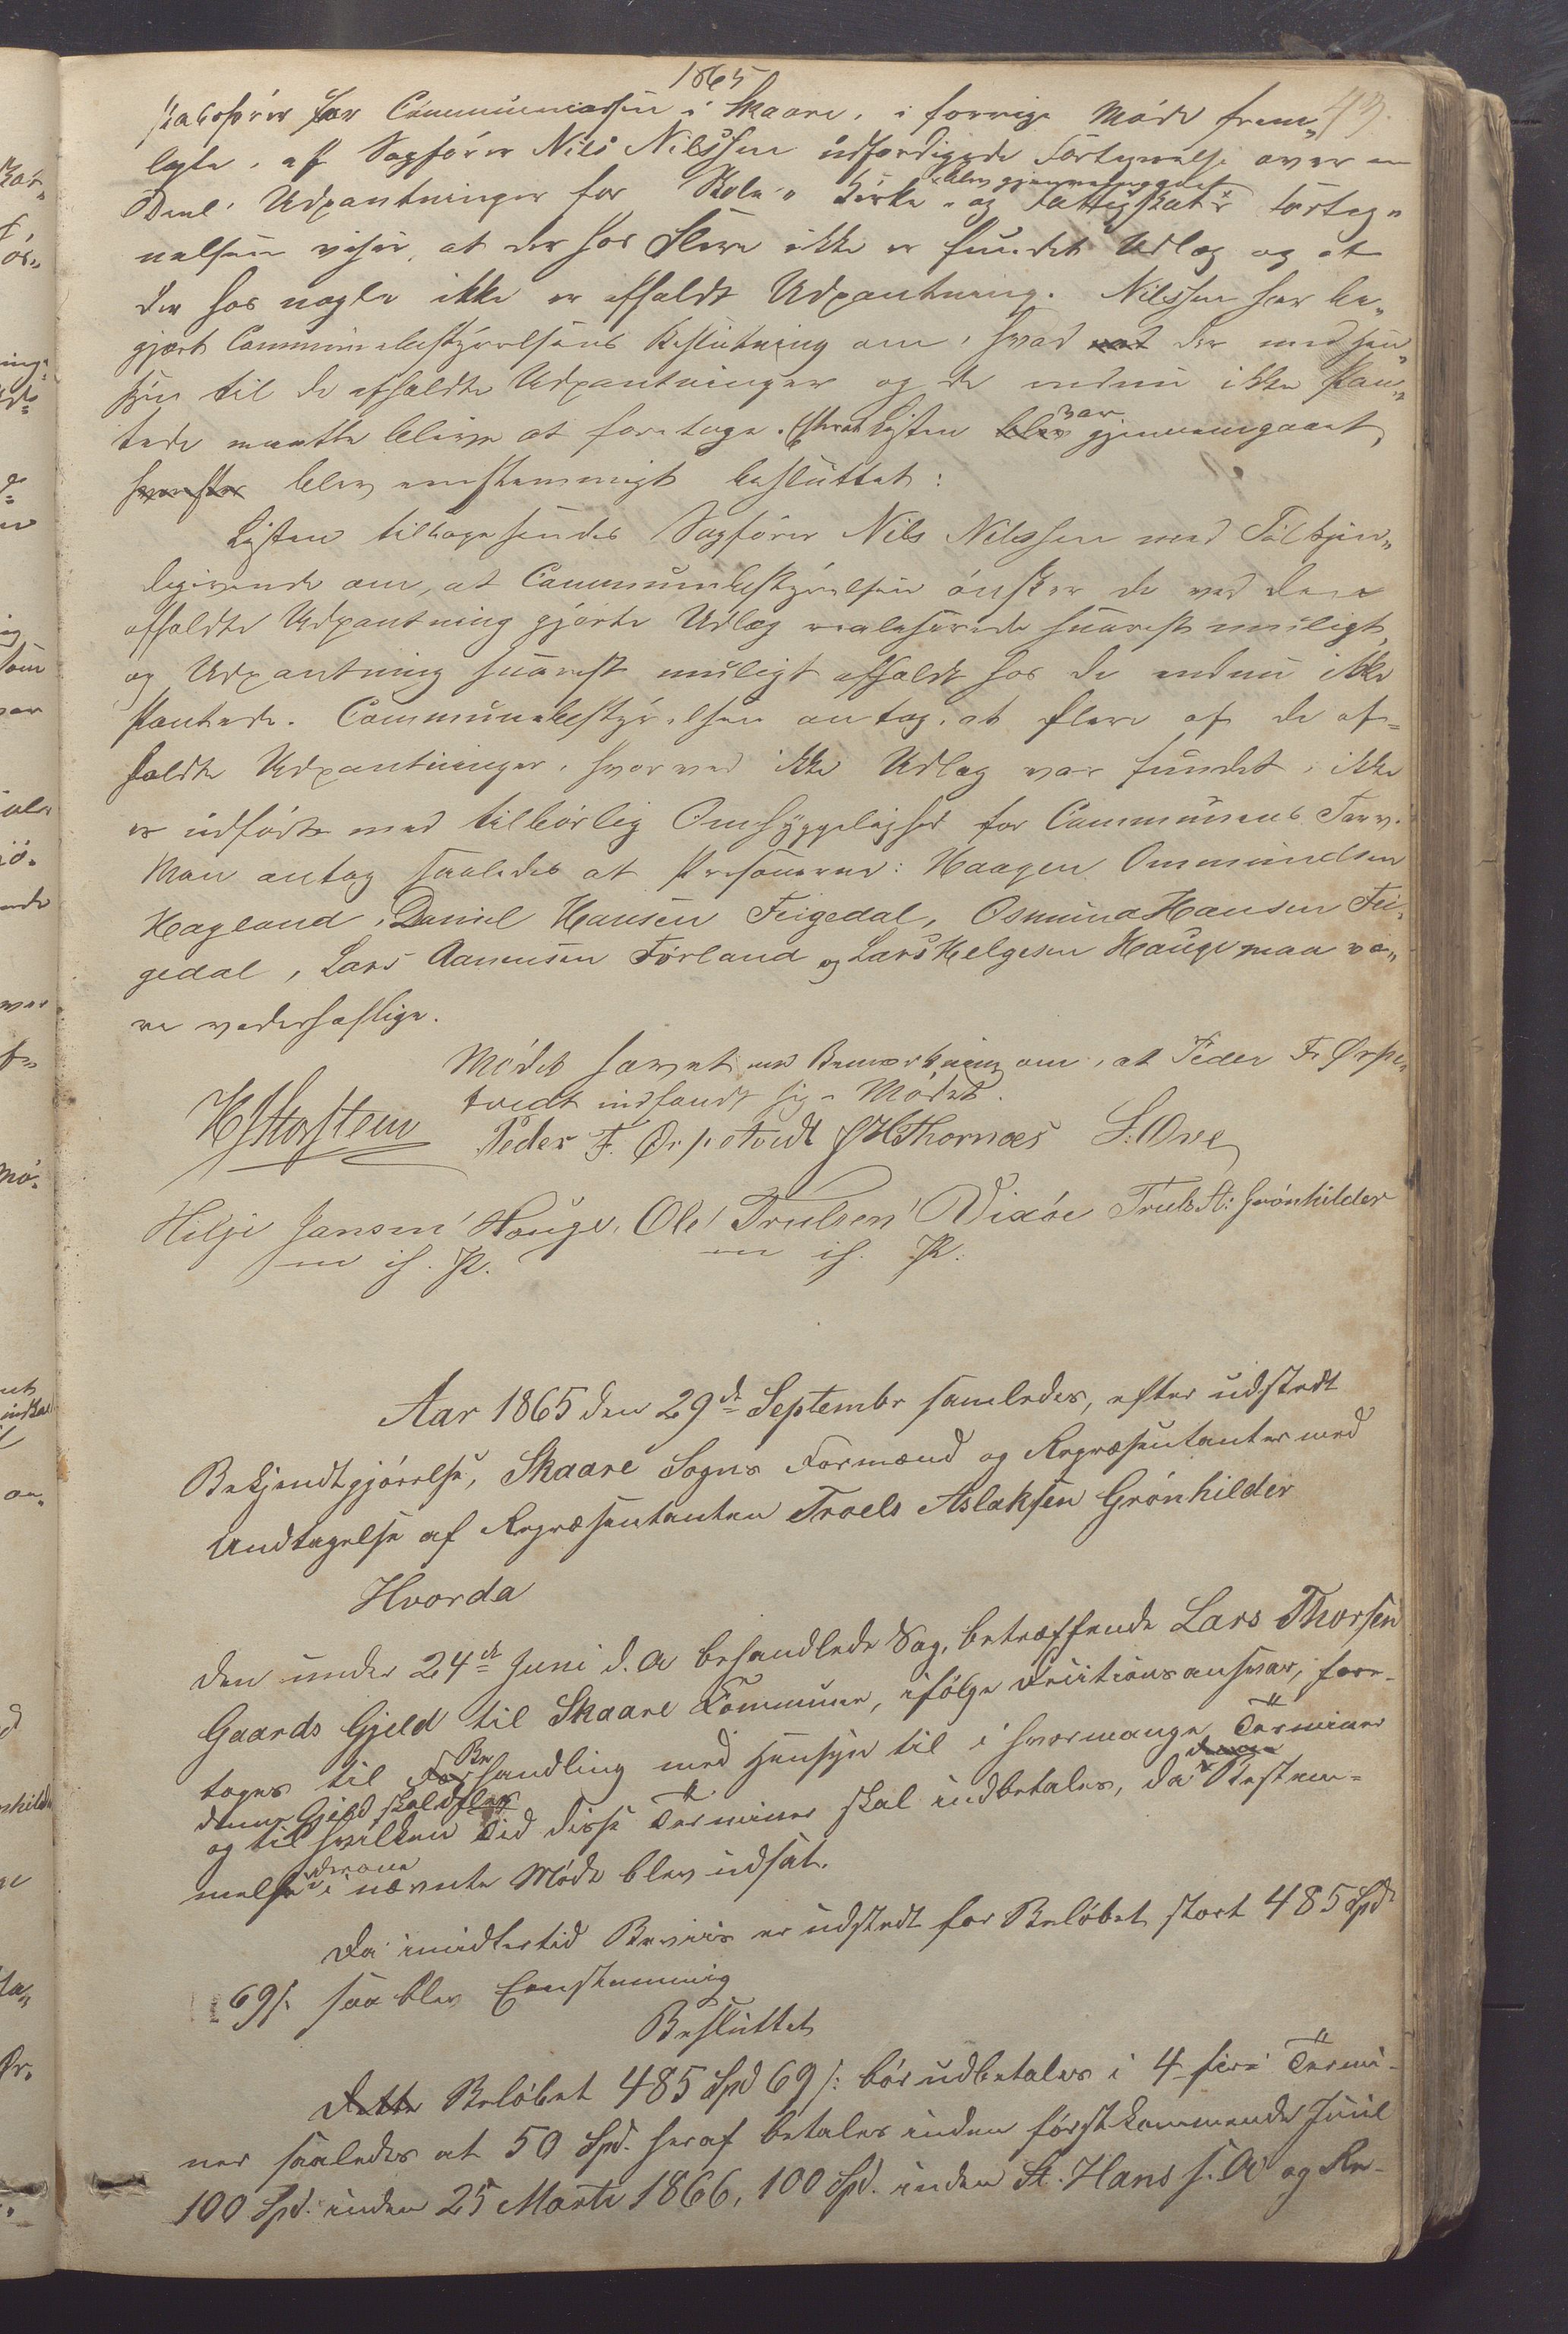 1865
43.
skabsfører for Communecassen i Skaare, i forrige Møde frem„
lagte, af Sagfører Nils Nilssen udfærdigede Fortegnelse over en
blev gjennemgaaet
Deel Udpantninger for Skole„ Kirke„ og Fattigskat. Forteg„
nelsen viser, at der hos Flere ikke er fundet Udlæg og at
der hos nogle ikke er afholdt Udpantning. Nilssen har be„
gjært Communebestyrelsens Beslutning om, hvad der med hen„
syn til de afholdte Udpantninger og de endnu ikke Pan„
tede maatte blive at foretage. Efterat Listen blev var gjennemgaaet,
hvorefter blev eenstemmigt besluttet:
Listen tilbagesendes Sagfører Nils Nilssen med Tilkjen„
degivende om, at Communebestyrelsen ønsker de ved den
afholdte Udpantning gjorte Udlæg realiserede snarest muligt,
og Udpantning snarest muligt afholdt hos de endnu ikke
Pantede. Communebestyrelsen antog, at flere af de af„
holdte Udpantninger, hvorved ikke Udlæg var fundet, ikke
er udførte med tilbørlig Omhyggelighed for Communens Tarv.
Man antog saaledes at Personerne: Haagen Ommundsen
Hagland, Daniel Hansen Feigedal, Osmund Hansen Fei„
gedal, Lars Aamusen Førland og Lars Helgesen Hauge maa væ„
re vederhæftige.
Mødet hævet med Bemærkning om, at Peder F. Ørpe„
tvedt indfandt sig i Mødet.
H Storstein Peder F. Ørpetvedt H Thornæs S. Ove
Hilje Jansen Hauge, Ole Trulsen Vixøe Truls A: Grønhilder
m. i. P. m. i. P.
Aar 1865 den 29de Septembr samledes, efter udstedt
Bekjendtgjørelse, Skaare Sogns Formænd og Repræsentanter med
Undtagelse af Repræsentanten Troels Aslaksen Grønhilder
Hvorda
den under 24de Juni d. A behandlede Sag, betræffende Lars Thorsen
Gaards Gjeld til Skaare Kommune, ifølge Decisionsansvar, fore-
toges til Forhandling Be med Hensyn til i hvormange Terminer
denne Gjeld skal
og til hvilken Tid disse Terminer skal indbetales, da Bestem=
melse derom i nævnte Møde blev udsat.
Da imidlertid Beviis er udstedt for Beløbet stort 485 Spd
69 s. saa blev Eenstemmig
Besluttet
Dette Beløbet 485 Spd 69 s: bør udbetales i 4 fire Termi-
ner saaledes at 50 Spd. heraf betales inden førstkommende Juul
100 Spd. inden 25 Marts 1866, 100 Spd. inden St. Hans s. A og Re-